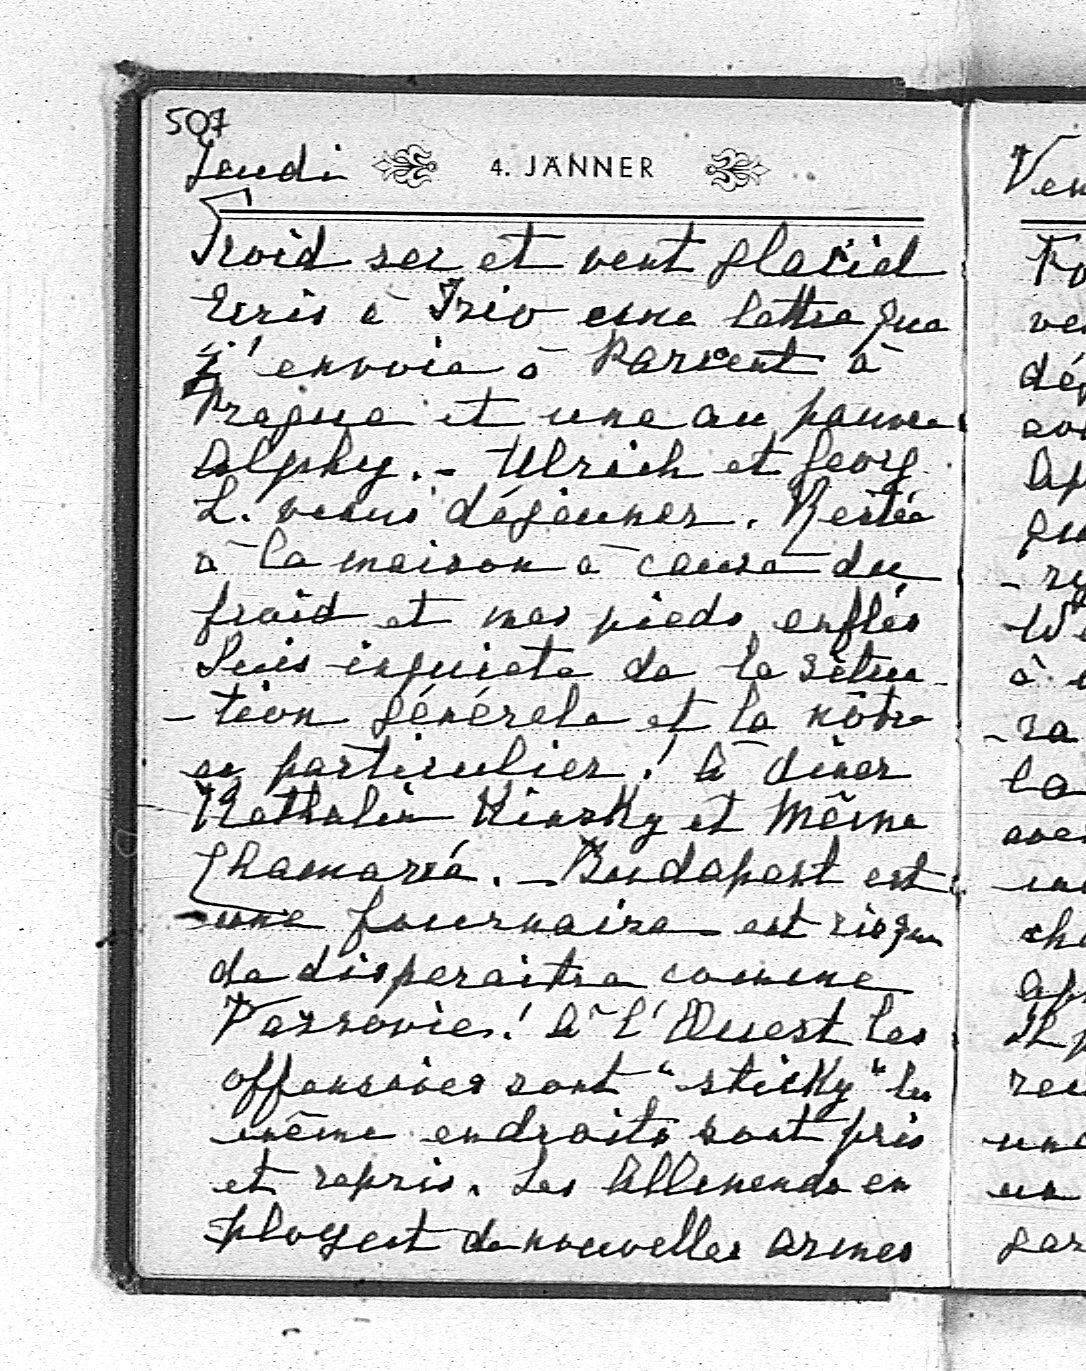 507
Jeudi 4. JÄNNER
Froid sec et vent glacial
Ecris à Trio une lettre que
j'envoie à Parcent à
Prague et une au pauvre
Alphy. - Ulrich et Georg
L. venus déjeuner. Restée
à la maison à cause du
froid et mes pieds enflés
Suis inquiète de la situa-
- tion générale et la nôtre
en particulier! A dîner
Kathalin Kinsky et Mème
Chamaré. - Budapest est
une fournaise est risque
de disparaitre comme
Varsovie! A l'Ouest les
offensives sont "sticky" les
même endroits sont pris
et repris. Les Allemands em
ployent de nouvelles armes
Ven
Fr
ve
dé
Ap
qu
à
- ra
la
ave
une
cha
ap
Il p
rec
une
un
par